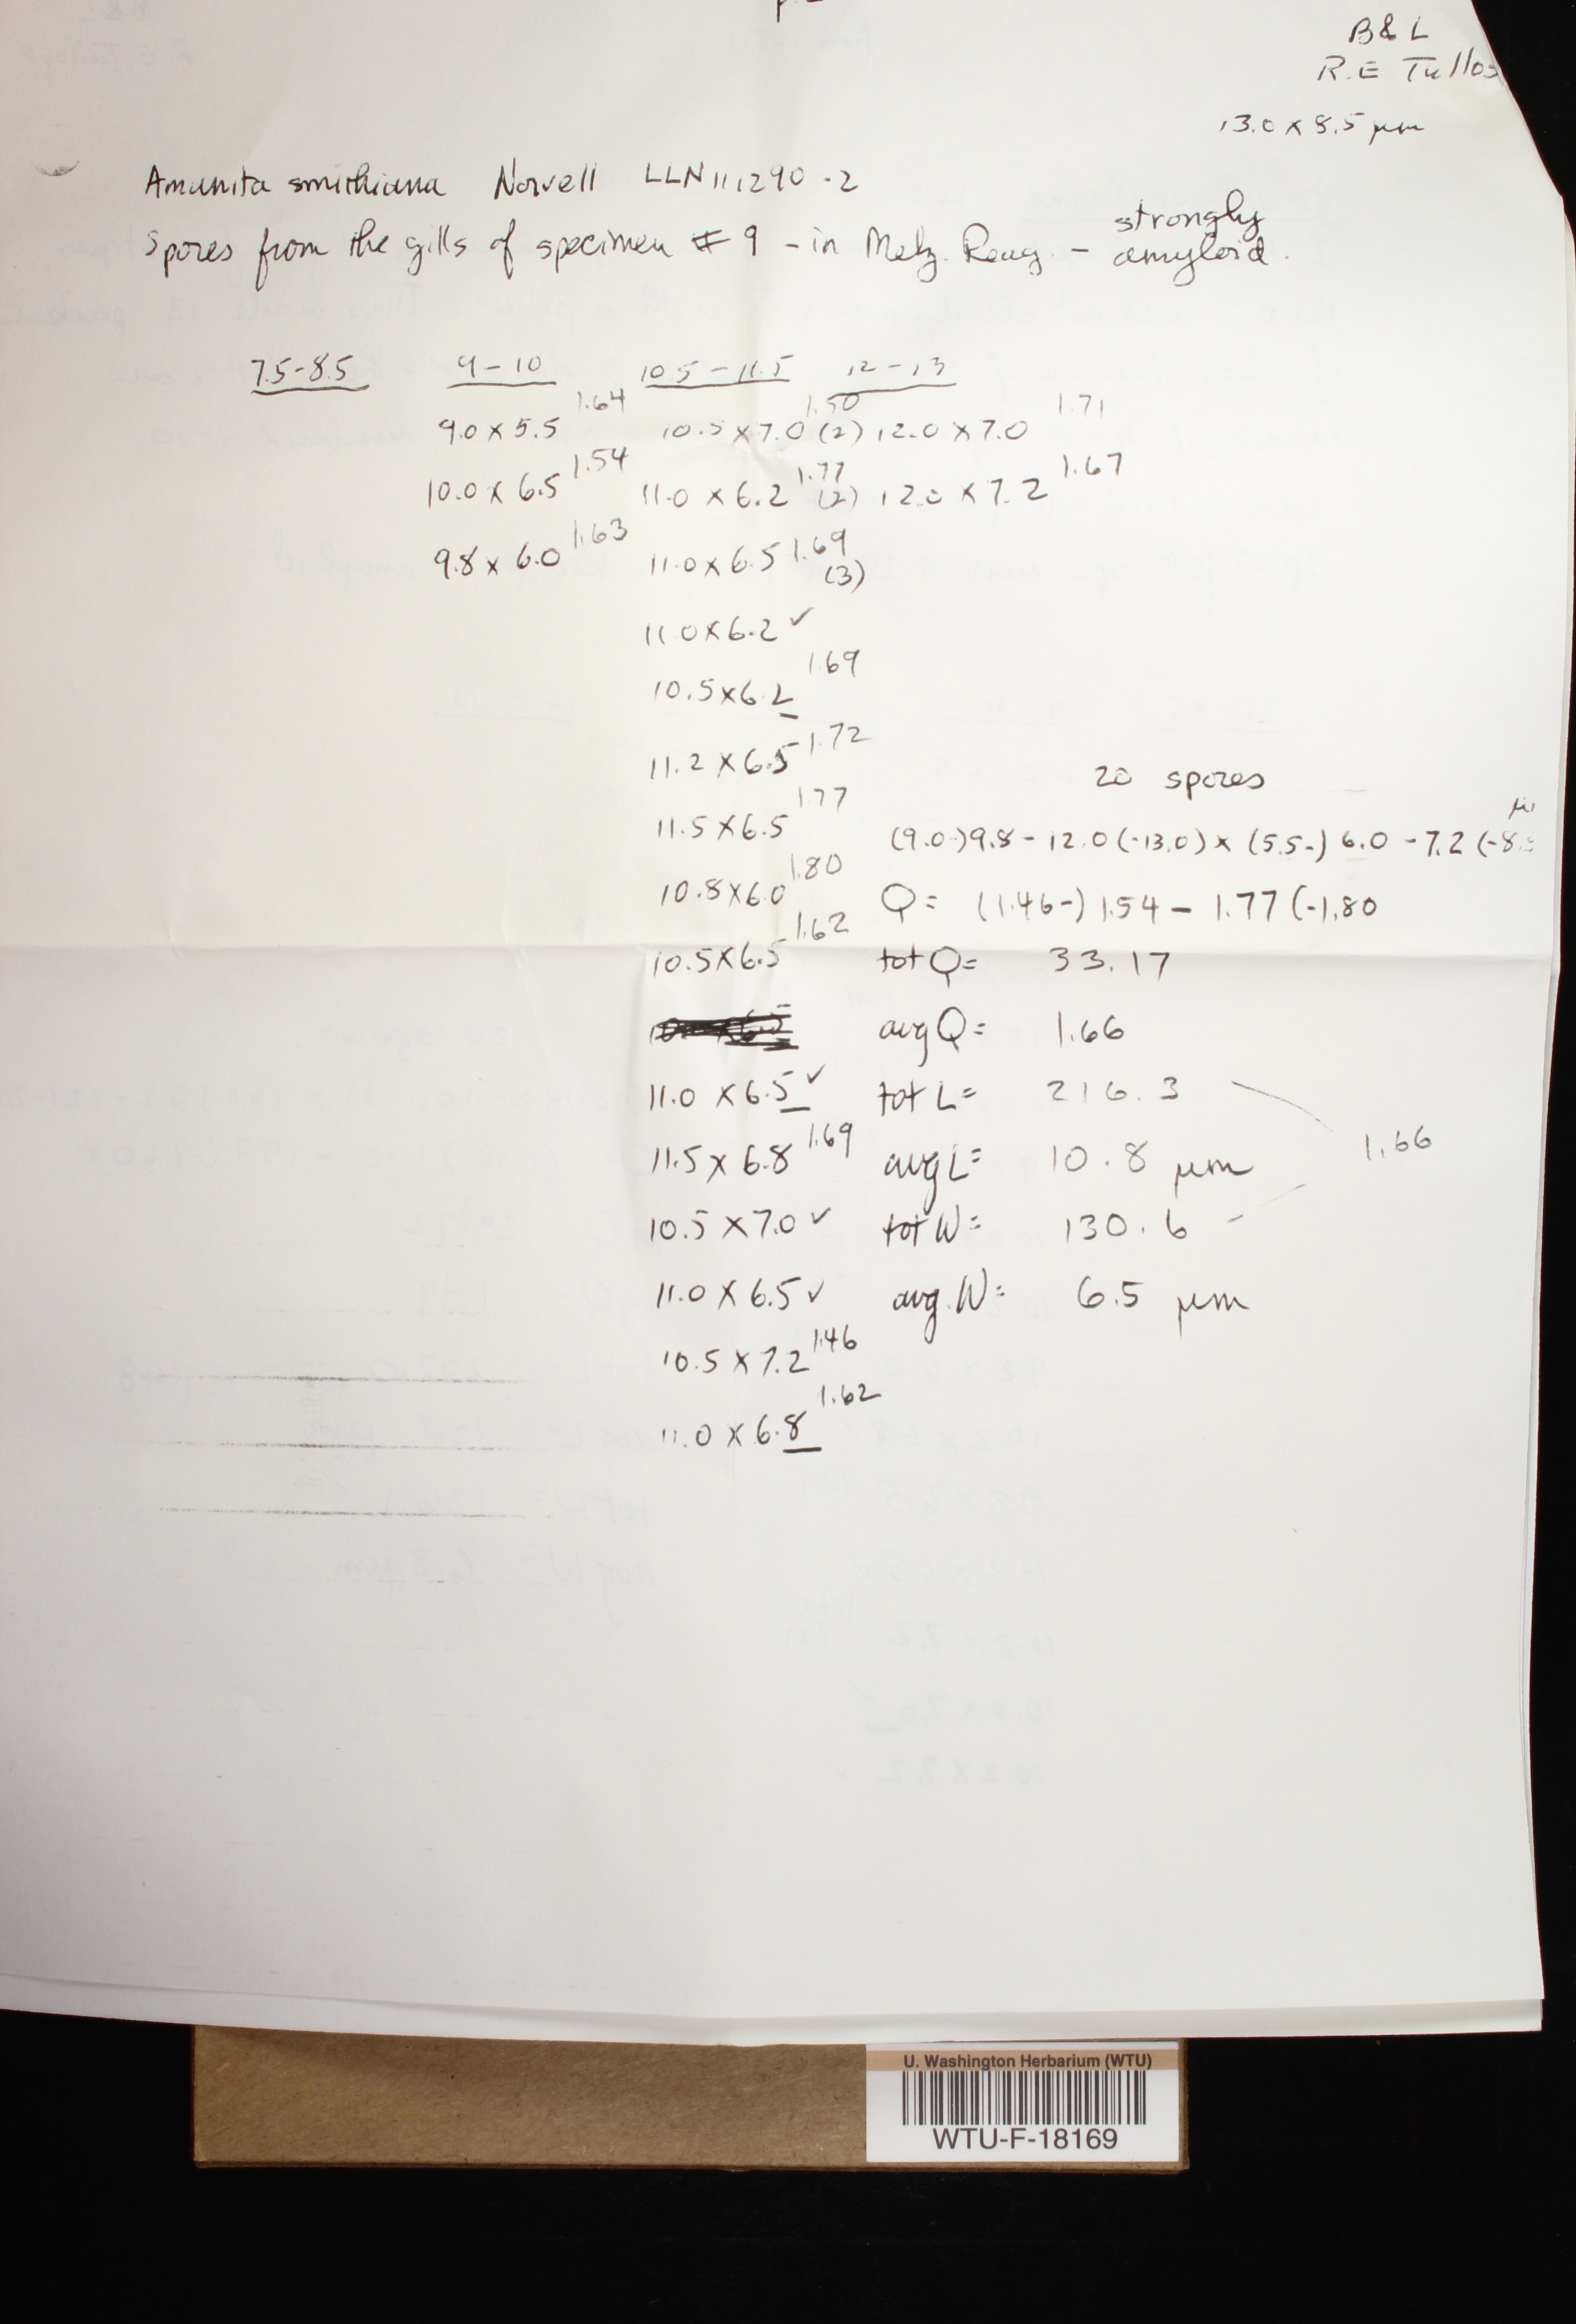 B & L
R.E Tullos
13.0 x 8.5 µm
Amanita smithiana Norvell LLN111290-2
Spores from the gills of specimen # 9 - in Melz. Reag. - strongly amyloid.
7.5-8.5 9-10 10.5-11.5 12-13
9.0 x 5.5 1.64 10.5 x 7.0 1.50 (2) 12.0 x 7.0 1.71
10.0 x 6.5 1.54 11.0 x 6.2 1.77 (2) 12.0 x 7.2 1.67
9.8 x 6.0 1.63 11.0 x 6.5 1.69 (3)
11.0 x 6.2 ✓
10.5 x 6.2 1.69
11.2 x 6.5 1.72
20 spores
11.5 x 6.5 1.77 (9.0-)9.8 - 12.0(-13.0) x (5.5-) 6.0 - 7.2 (-8.5 µ
10.8 x 6.0 1.80 Q = (1.46-) 1.54 - 1.77 (-1.80
10.5 x 6.5 1.62 tot Q = 33.17
avg Q = 1.66
11.0 x 6.5 ✓ tot L = 216.3
11.5 x 6.8 1.69 avg L = 10.8 µm 1.66
10.5 x 7.0 ✓ tot W = 130.6
11.0 x 6.5 ✓ avg. W = 6.5 µm
10.5 x 7.2 1.46
11.0 x 6.8 1.62
U. Washington Herbarium (WTU)
WTU-F-18169